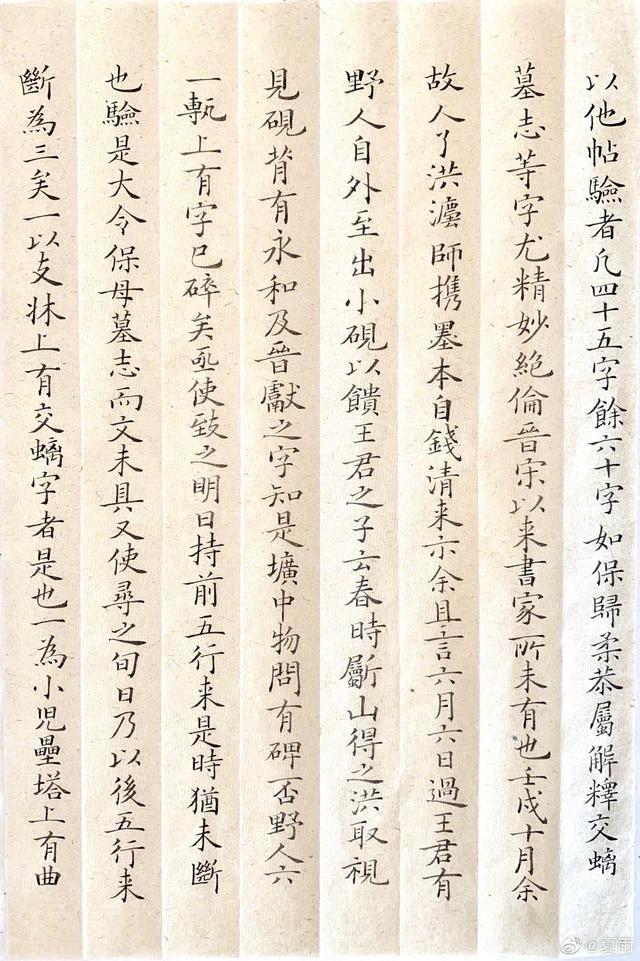 以他帖驗者凡四十五字餘六十字如保歸柔恭屬解釋交螭
墓志等字尤精妙絕倫晉宋以来書家所未有也壬戌十月余
故人了洪灋師携墨本自錢清来示余且言六月六日過王君有
野人自外至出小硯以饋王君之子云春時斸山得之洪取視
見硯背有永和及晉獻之字知是壙中物問有碑否野人六
一甎上有字已碎矣亟使致之明日持前五行来是時猶未斷
也驗是大令保母墓志而文未具又使尋之旬日乃以後五行来
斷為三矣一以支牀上有交螭字者是也一為小児壘塔上有曲
@夏雨